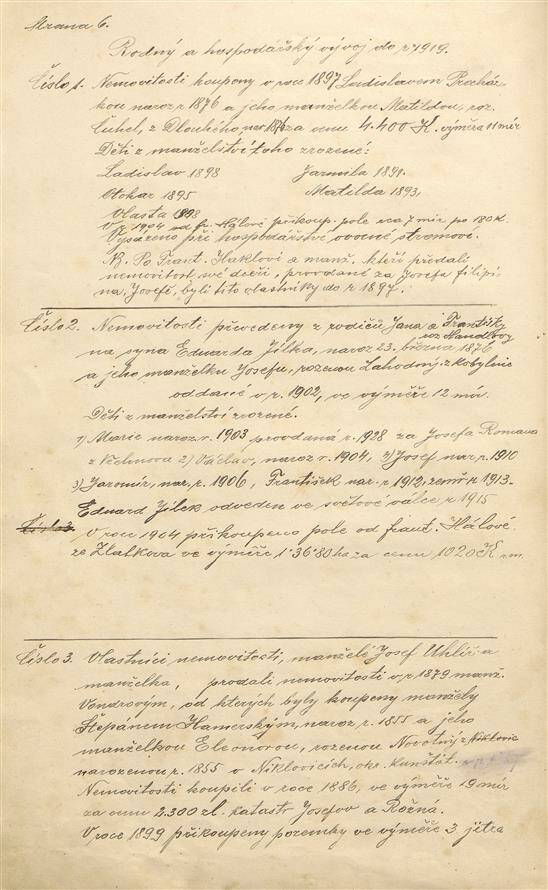 Strana 6.
Rodný a hospodářský vývoj do r. 1919.
Číslo 1. Nemovitosti koupeny v roce 1897 Ladislavem Procház-
kou naroz. r. 1876 a jeho manželkou Matildou, roz.
z Dlouhého, nar. za cenu 4.400 K. výměra 11 mír
Děti z manželství toho zrozené:
Ladislav 1898 Jarmila 1891.
Otokar 1895 Matilda 1893,
Vlasta
V r. 1904 od fr. Hálové přikoup. pole cca 7 mír po 180 K.
Vysázeno při hospodářství ovocné stromoví.
N. Po Frant. Haklovi a manž. kteří předali
nemovitost své dceři, provdané za Josefa Filipi-
na, Josefě, byli tito vlastníky do r. 1897.
Číslo 2. Nemovitosti převedeny z rodičů Jana a Františky
roz. Handlboy
na syna Eduarda Jílka, naroz. 23. března 1876
a jeho manželku Josefu, rozenou Zahodný, z Kobylnic
oddané v r. 1902, ve výměře 12 mír.
Děti z manželství zrozené.
1) Marie naroz. r. 1903 provdaná r. 1928 za Josefa Romana
z Věchnova 2) Václav, naroz. r. 1904, 3) Josef nar. r. 1910
3) Jaromír, nar. r. 1906, František nar. r. 1912, zemř. r. 1913.
Eduard Jílek odveden ve světové válce, r. 1915
Číslo 3. V roce 1904 přikoupeno pole od frant. Hálové
ze Zlatkova ve výměře 1˙36˙80 ha za cenu 1020 K
Číslo 3. Vlastníci nemovitosti, manželé Josef Uhlíř a
manželka, prodali nemovitosti v r. 1879 manž.
od kterých byly koupeny manžely
Štěpánem Hamerským, naroz. r. 1855 a jeho
manželkou Eleonorou, rozenou Novotný z Niklovic
narozenou r. 1855 v Niklovicích, okr. Kunštát.
Nemovitosti koupili v roce 1886, ve výměře 19 mír
za cenu 2.300 zl. katastr Josefov a Rožná.
V roce 1899 přikoupeny pozemky ve výměře 3 jitra